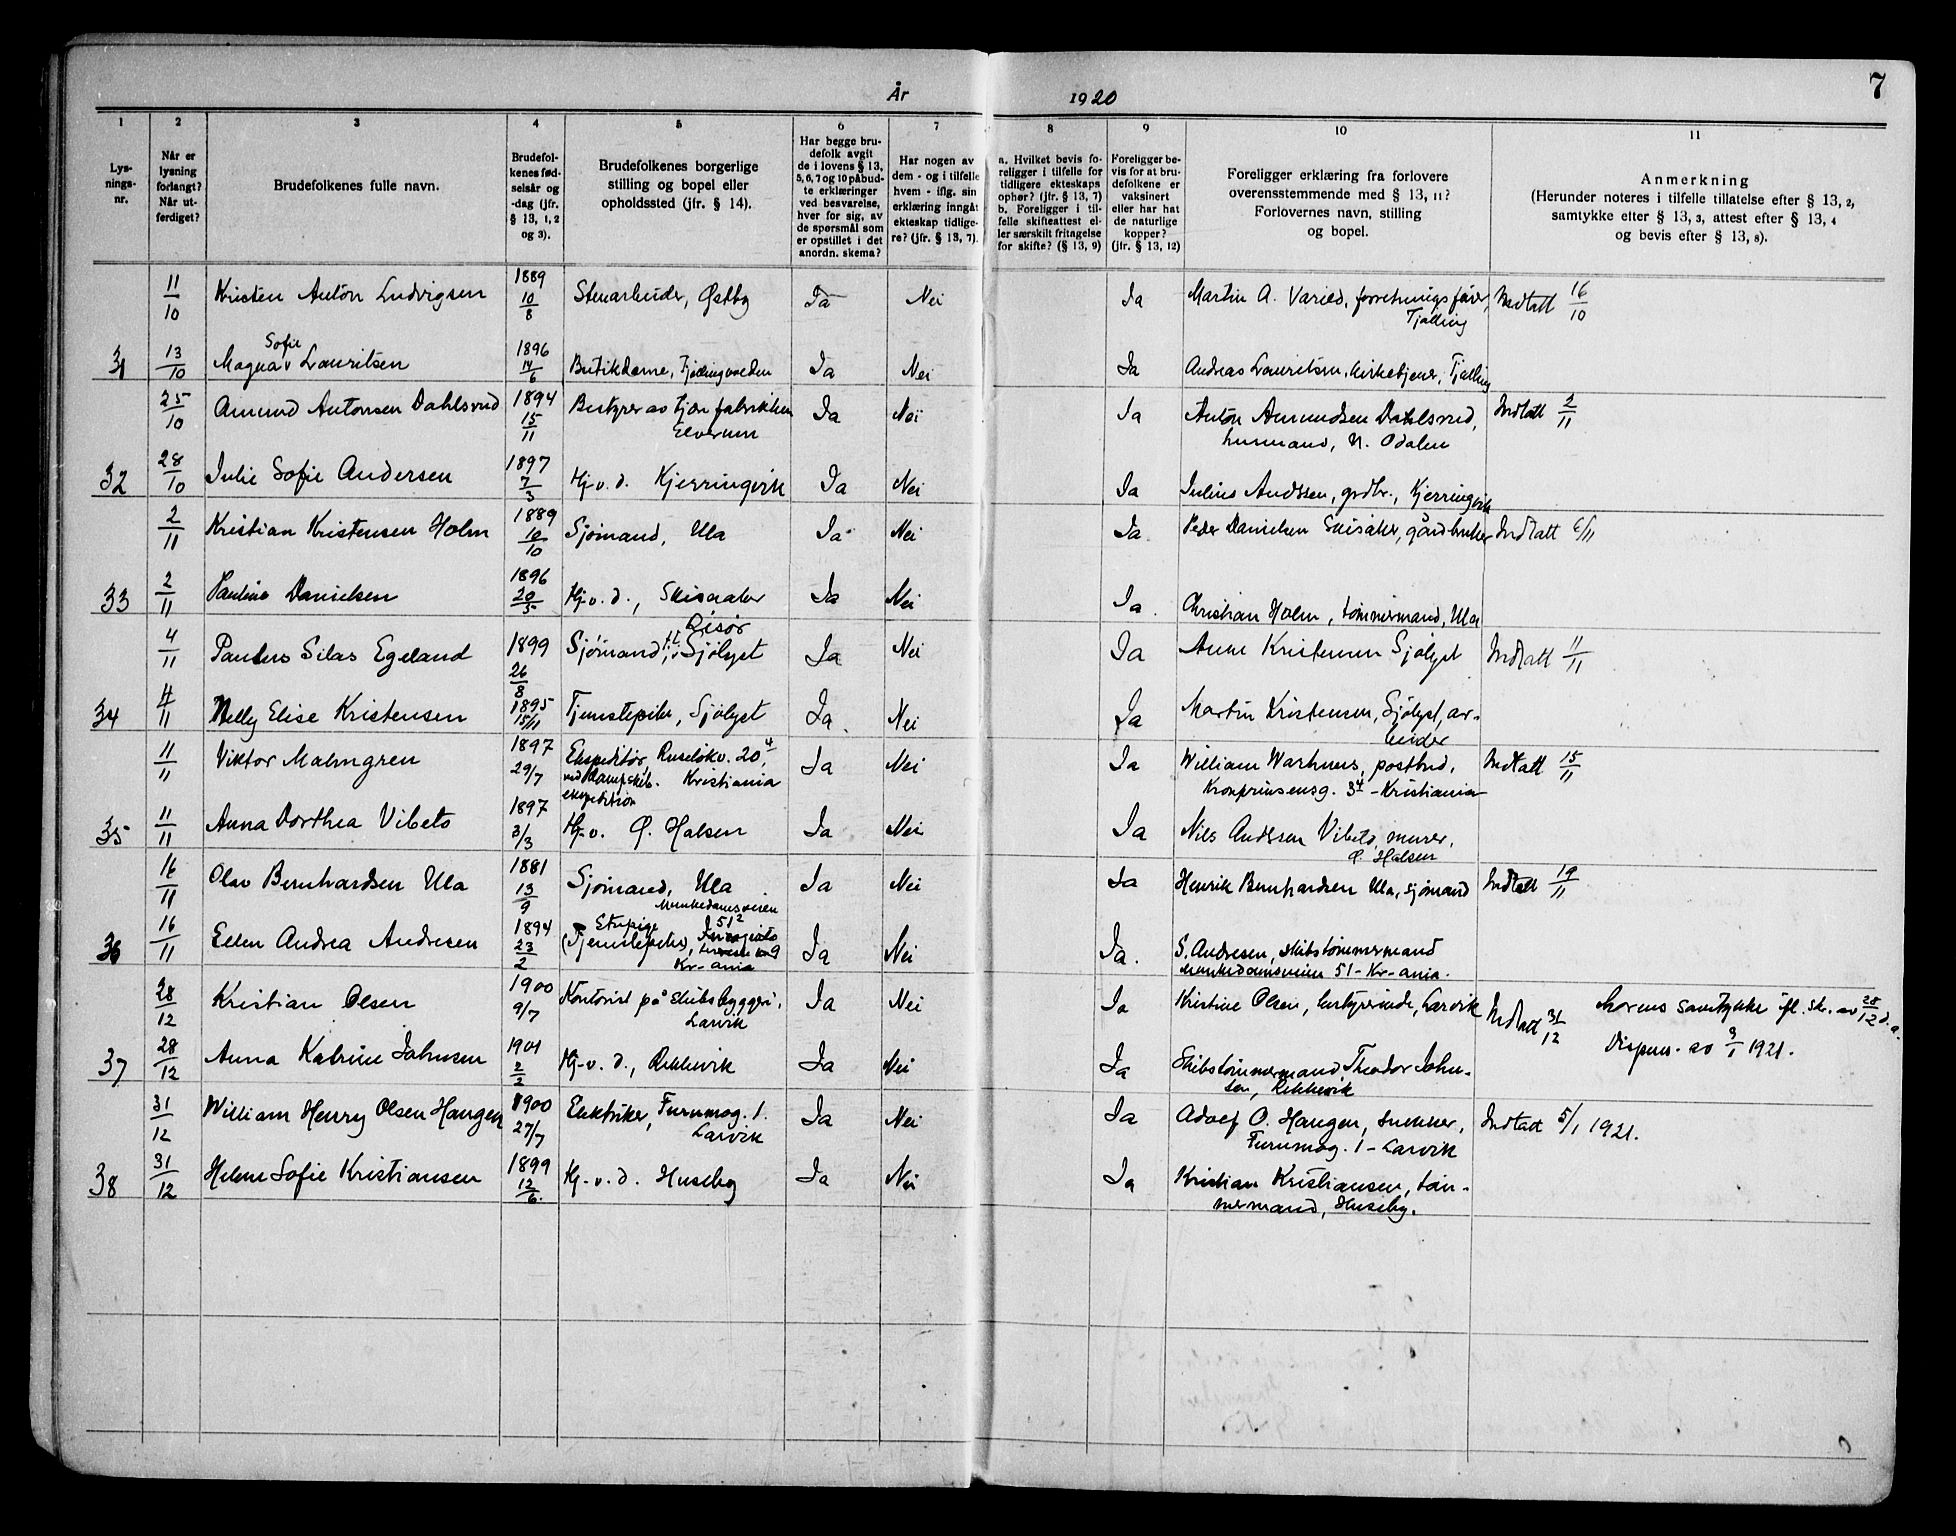 År 1920
7
1 2 3 4 5 6 7 8 9 10 11
Lys-
nings-
nr.
Når er
lysning
forlangt?
Når ut-
ferdiget?
Brudefolkenes fulle navn.
Brudefol-
kenes fød-
selsår og
-dag (jfr.
§ 13, 1, 2
og 3).
Brudefolkenes borgerlige
stilling og bopel eller
opholdssted (jfr. § 14).
Har begge bru-
defolk avgit
de i lovens § 13,
5, 6, 7 og 10 påbud-
te erklæringer
ved besvarelse,
hver for sig, av
de spørsmål som
er opstillet i det
anordn. skema?
Har nogen av
dem - og i tilfelle
hvem - iflg. sin
erklæring inngåt
ekteskap tidlige-
re? (jfr. § 13, 7).
a. Hvilket bevis fo-
religger i tilfelle for
tidligere ekteskaps
ophør? (jfr. § 13, 7)
b. Foreligger i til-
felle skifteattest el-
ler særskilt fritagelse
for skifte? (§ 13, 9)
Foreligger be-
vis for at bru-
defolkene er
vaksinert
eller har hat
de naturlige
kopper?
(jfr. § 13, 12)
Foreligger erklæring fra forlovere
overensstemmende med § 13, 11?
Forlovernes navn, stilling
og bopel.
Anmerkning
(Herunder noteres i tilfelle tillatelse efter § 13, 2,
samtykke efter § 13, 3, attest efter § 13, 4
og bevis efter § 13, 8).
11/10 Kristen Anton Ludvigsen 1889 10/8 Stenarbeider, Østby Ja Nei Ja Martin A. Varild, forretningsfører, Tjølling Indtatt 16/10
31 13/10 Magna Sofie Lauritsen 1896 14/6 Butikdame, Tjøllingvolden Ja Nei Ja Andreas Lauritsen, kirketjener, Tjølling
25/10 Amund Antonsen Dahlsrud 1894 15/11 Bestyrer av tjærefabrikken Elverum Ja Nei Ja Anton Amundsen Dahlsrud, Indtatt 2/11
husmand, N. Odalen
32 28/10 Julie Sofie Andersen 1897 7/3 Hj. v. d. Kjerringvik Ja Nei Ja Julius Andssen, grdbr., Kjerringvik
2/11 Kristian Kristensen Holm 1889 10/10 Sjømand, Ula Ja Nei Ja Peder Danielsen Skisaker, gårdbruker Indtatt 6/11
33 2/11 Pauline Danielsen 1896 20/5 Hj. v. d., Skisaaker Ja Nei Ja Christian Holm, tømmermand, Ula
4/11 Egeland 1899 26/8 Sjømand, Risør Sjølyst Ja Nei Ja Anne Kristensen Sjølyst Indtatt 11/11
34 4/11 Nelly Elise Kristensen 1895 15/11 Tjenestepike, Sjølyst Ja Nei Ja Martin Kristensen, Sjølyst, ar-
beider
11/11 Viktor Malmgren 1897 29/7 Ekspeditør, Ruseløkv. 20 4,
ved dampskib. Kristiania
ekspedition Ja Nei Ja William Warhuus, postbud, Indtatt 15/11
Kronprinsensg. 3 4 - Kristiania
35 11/11 Anna Dorthea Vibeto 1897 3/3 Hj. v. Ø. Halsen Ja Nei Ja Nils Andssen Vibeto, murer,
Ø. Halsen
16/11 Olav Bernhardsen Ula 1881 13/9 Sjømand, Ula Ja Nei Ja Henrik Bernhardsen Ula, sjømand Indtatt 19/11
36 16/11 Ellen Andrea Andresen 1894 23/2 Munkedamsveien 51 2 Kr-ania Ja Nei Ja. S. Andresen, skibstømmermand
Munkedamsveien 51 - Kr-ania.
28/12 Kristian Olsen 1900 9/7 Kontorist på skibsbyggeri,
Larvik Ja Nei Ja Kristine Olsen, bestyrerinde, Larvik Indtatt 31/12 Morens samtykke ifl. skr. av 28/12 d. a.
Dispens. av 3/1 1921.
37 28/12 Anna Katrine Johnsen 1901 2/2 Hj. v. d., Rekkevik Ja Nei Ja Skibstømmermand Theodor John-
sen, Rekkevik
31/12 William Henry Olsen Haugen 1900 27/7 Elektriker, Furumog. 1.
Larvik Ja Nei Ja Adolf O. Haugen, snekker, Indtatt 5/1 1921.
Furumog. 1 - Larvik
38 31/12 Helene Sofie Kristiansen 1899 12/6 Hj. v. d. Huseby Ja Nei Ja Kristian Kristiansen, tøm-
mermand, Huseby.